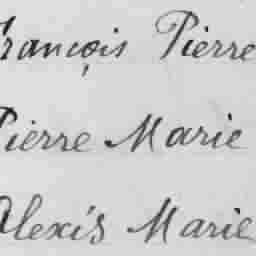 François Pierre
Pierre Marie
Alexis Marie